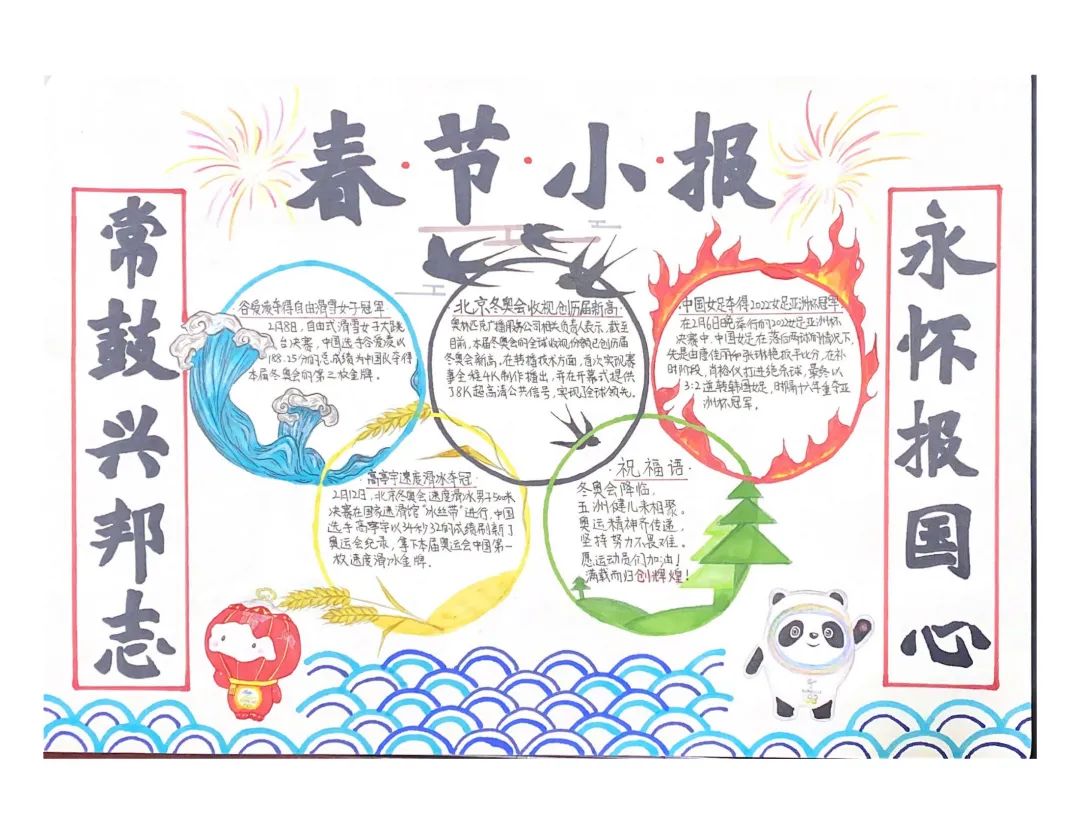 春·节·小·报
常鼓兴邦志
永怀报国心
谷爱凌夺得自由滑雪女子冠军
2月8日,自由式滑雪女子大跳
台决赛,中国选手谷爱凌以
188.25分的总成绩为中国队夺得
本届冬奥会的第三枚金牌。
北京冬奥会收视创历届新高
奥林匹克广播服务公司相关负责人表示,截至
目前,本届冬奥会的全球收视份额已创历届
冬奥会新高,在转播技术方面,首次实现赛
事全程4K制作播出,并在开幕式提供
了8K超高清公共信号,实现了全球领先。
中国女足夺得2022女足亚洲杯冠军
在2月6日晚举行的2022女足亚洲杯
决赛中,中国女足在落后两球的情况下,
先是由唐佳丽和张琳艳扳平比分,在补
时阶段,肖裕仪打进绝杀球,最终以
3:2逆转韩国女足,时隔十六年重夺亚
洲杯冠军。
高亭宇速度滑冰夺冠
2月12日,北京冬奥会速度滑冰男子500米
决赛在国家速滑馆“冰丝带”进行,中国
选手高亭宇以34秒32的成绩刷新了
奥运会纪录,拿下本届奥运会中国第一
枚速度滑冰金牌。
·祝福语·
冬奥会降临,
五洲健儿来相聚。
奥运精神齐传递,
坚持努力不畏难。
愿运动员们加油!
满载而归创辉煌!